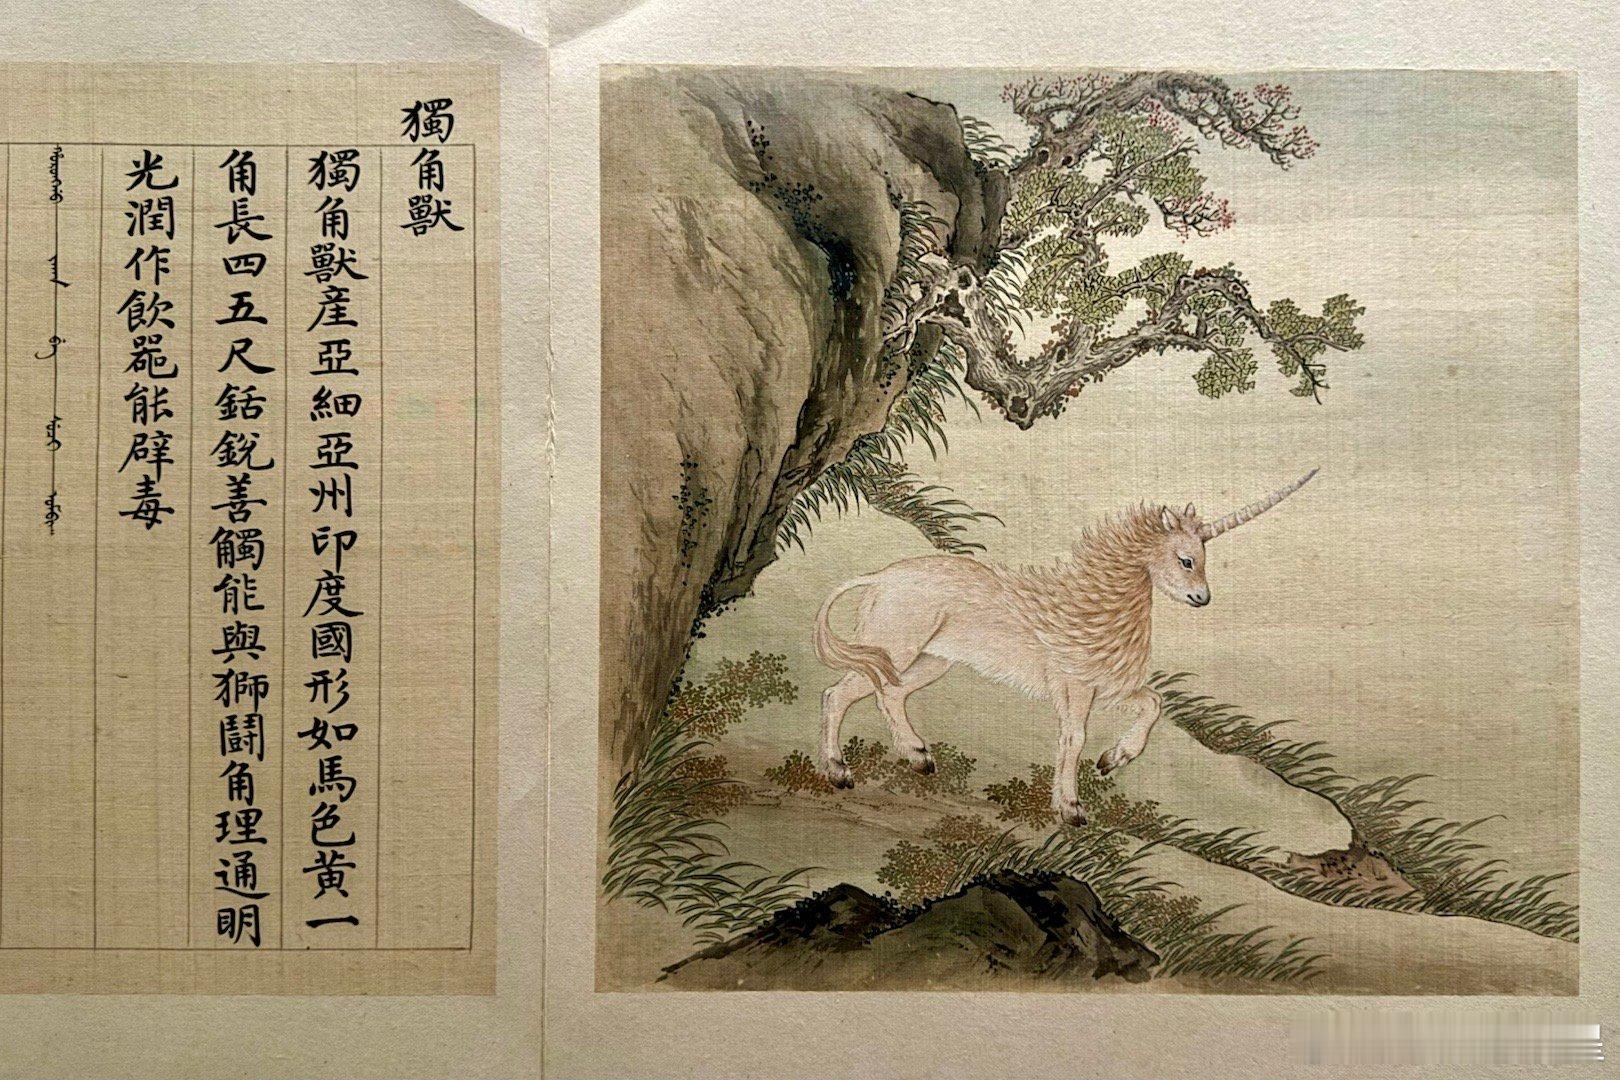 獨角獸
獨角獸産亞細亞州印度國形如馬色黄一
角長四五尺銛銳善觸能與獅鬪角理通明
光潤作飲噐能辟毒